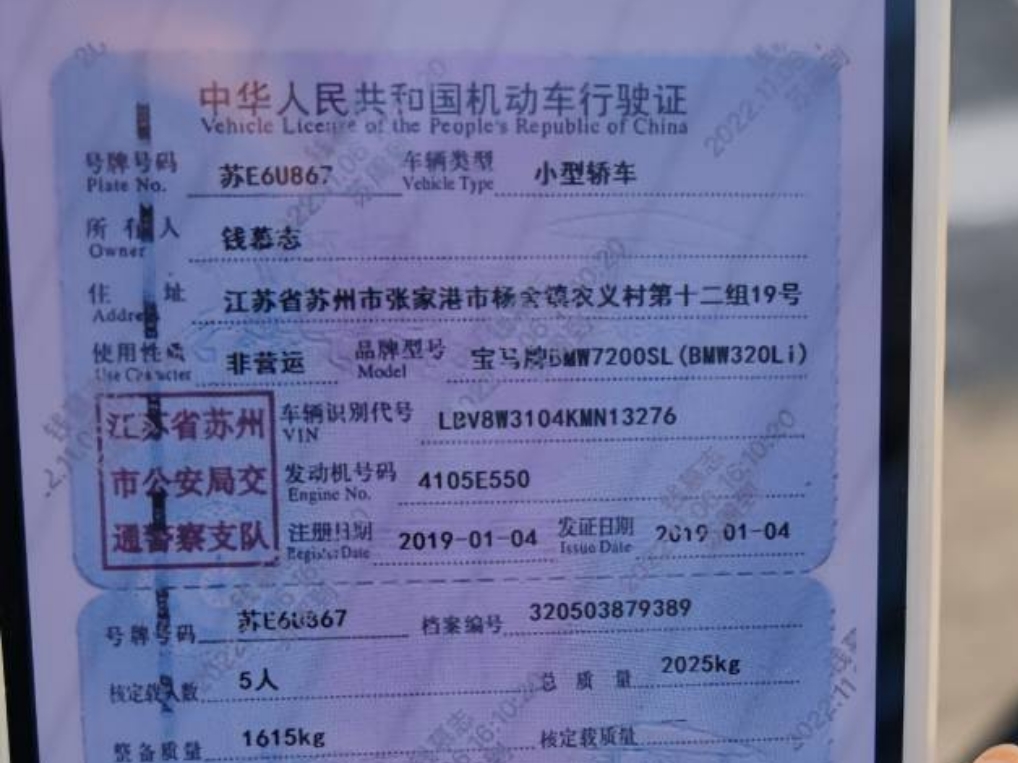 中华人民共和国机动车行驶证
Vehicle License of the People's Republic of China
号牌号码 苏E6U867 车辆类型 小型轿车
Plate No. Vehicle Type
所有人 钱慕志
Owner
住 址 江苏省苏州市张家港市杨舍镇农义村第十二组19号
Address
使用性质 非营运 品牌型号 宝马牌BMW7200SL(BMW320Li)
Use Character Model
江苏省苏州 车辆识别代号 LBV8W3104KMN13276
VIN
市公安局交 发动机号码 4105E550
Engine No.
通警察支队 注册日期 2019-01-04 发证日期 2019-01-04
Register Date Issue Date
号牌号码 苏E6U867 档案编号 320503879389
核定载人数 5人 总 质 量 2025kg
整备质量 1615kg 核定载质量